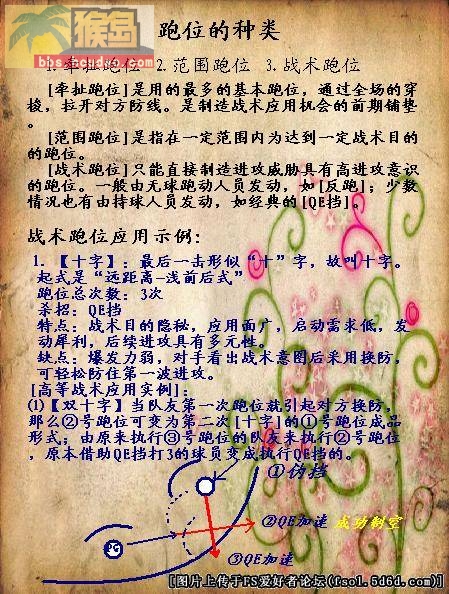 猴岛
bbs.houdao.com
跑位的种类
1.牵扯跑位 2.范围跑位 3.战术跑位
[牵扯跑位]是用的最多的基本跑位，通过全场的穿
梭，拉开对方防线。是制造战术应用机会的前期铺垫
。
[范围跑位]是指在一定范围内为达到一定战术目的
的跑位。
[战术跑位]只能直接制造进攻威胁具有高进攻意识
的跑位。一般由无球跑动人员发动，如[反跑]；少数
情况也有由持球人员发动，如经典的[QE挡]。
战术跑位应用示例：
1.【十字】：最后一击形似“十”字，故叫十字。
起式是“远距离-浅前后式”
跑位总次数：3次
杀招：QE挡
特点：战术目的隐秘，应用面广，启动需求低，发
动犀利，后续进攻具有多元性。
缺点：爆发力弱，对手看出战术意图后采用换防，
可轻松防住第一波进攻。
[高等战术应用实例]：
(1)【双十字】当队友第一次跑位就引起对方换防，
那么②号跑位可变为第二次[十字]的①号跑位成品
形式；由原来执行③号跑位的队友来执行②号跑位
，原本借助QE挡打3的球员变成执行QE挡的。
①伪挡
②QE加速 成功制空
PG
③QE加速
[图片上传于FS爱好者论坛(fsol.5d6d.com)]